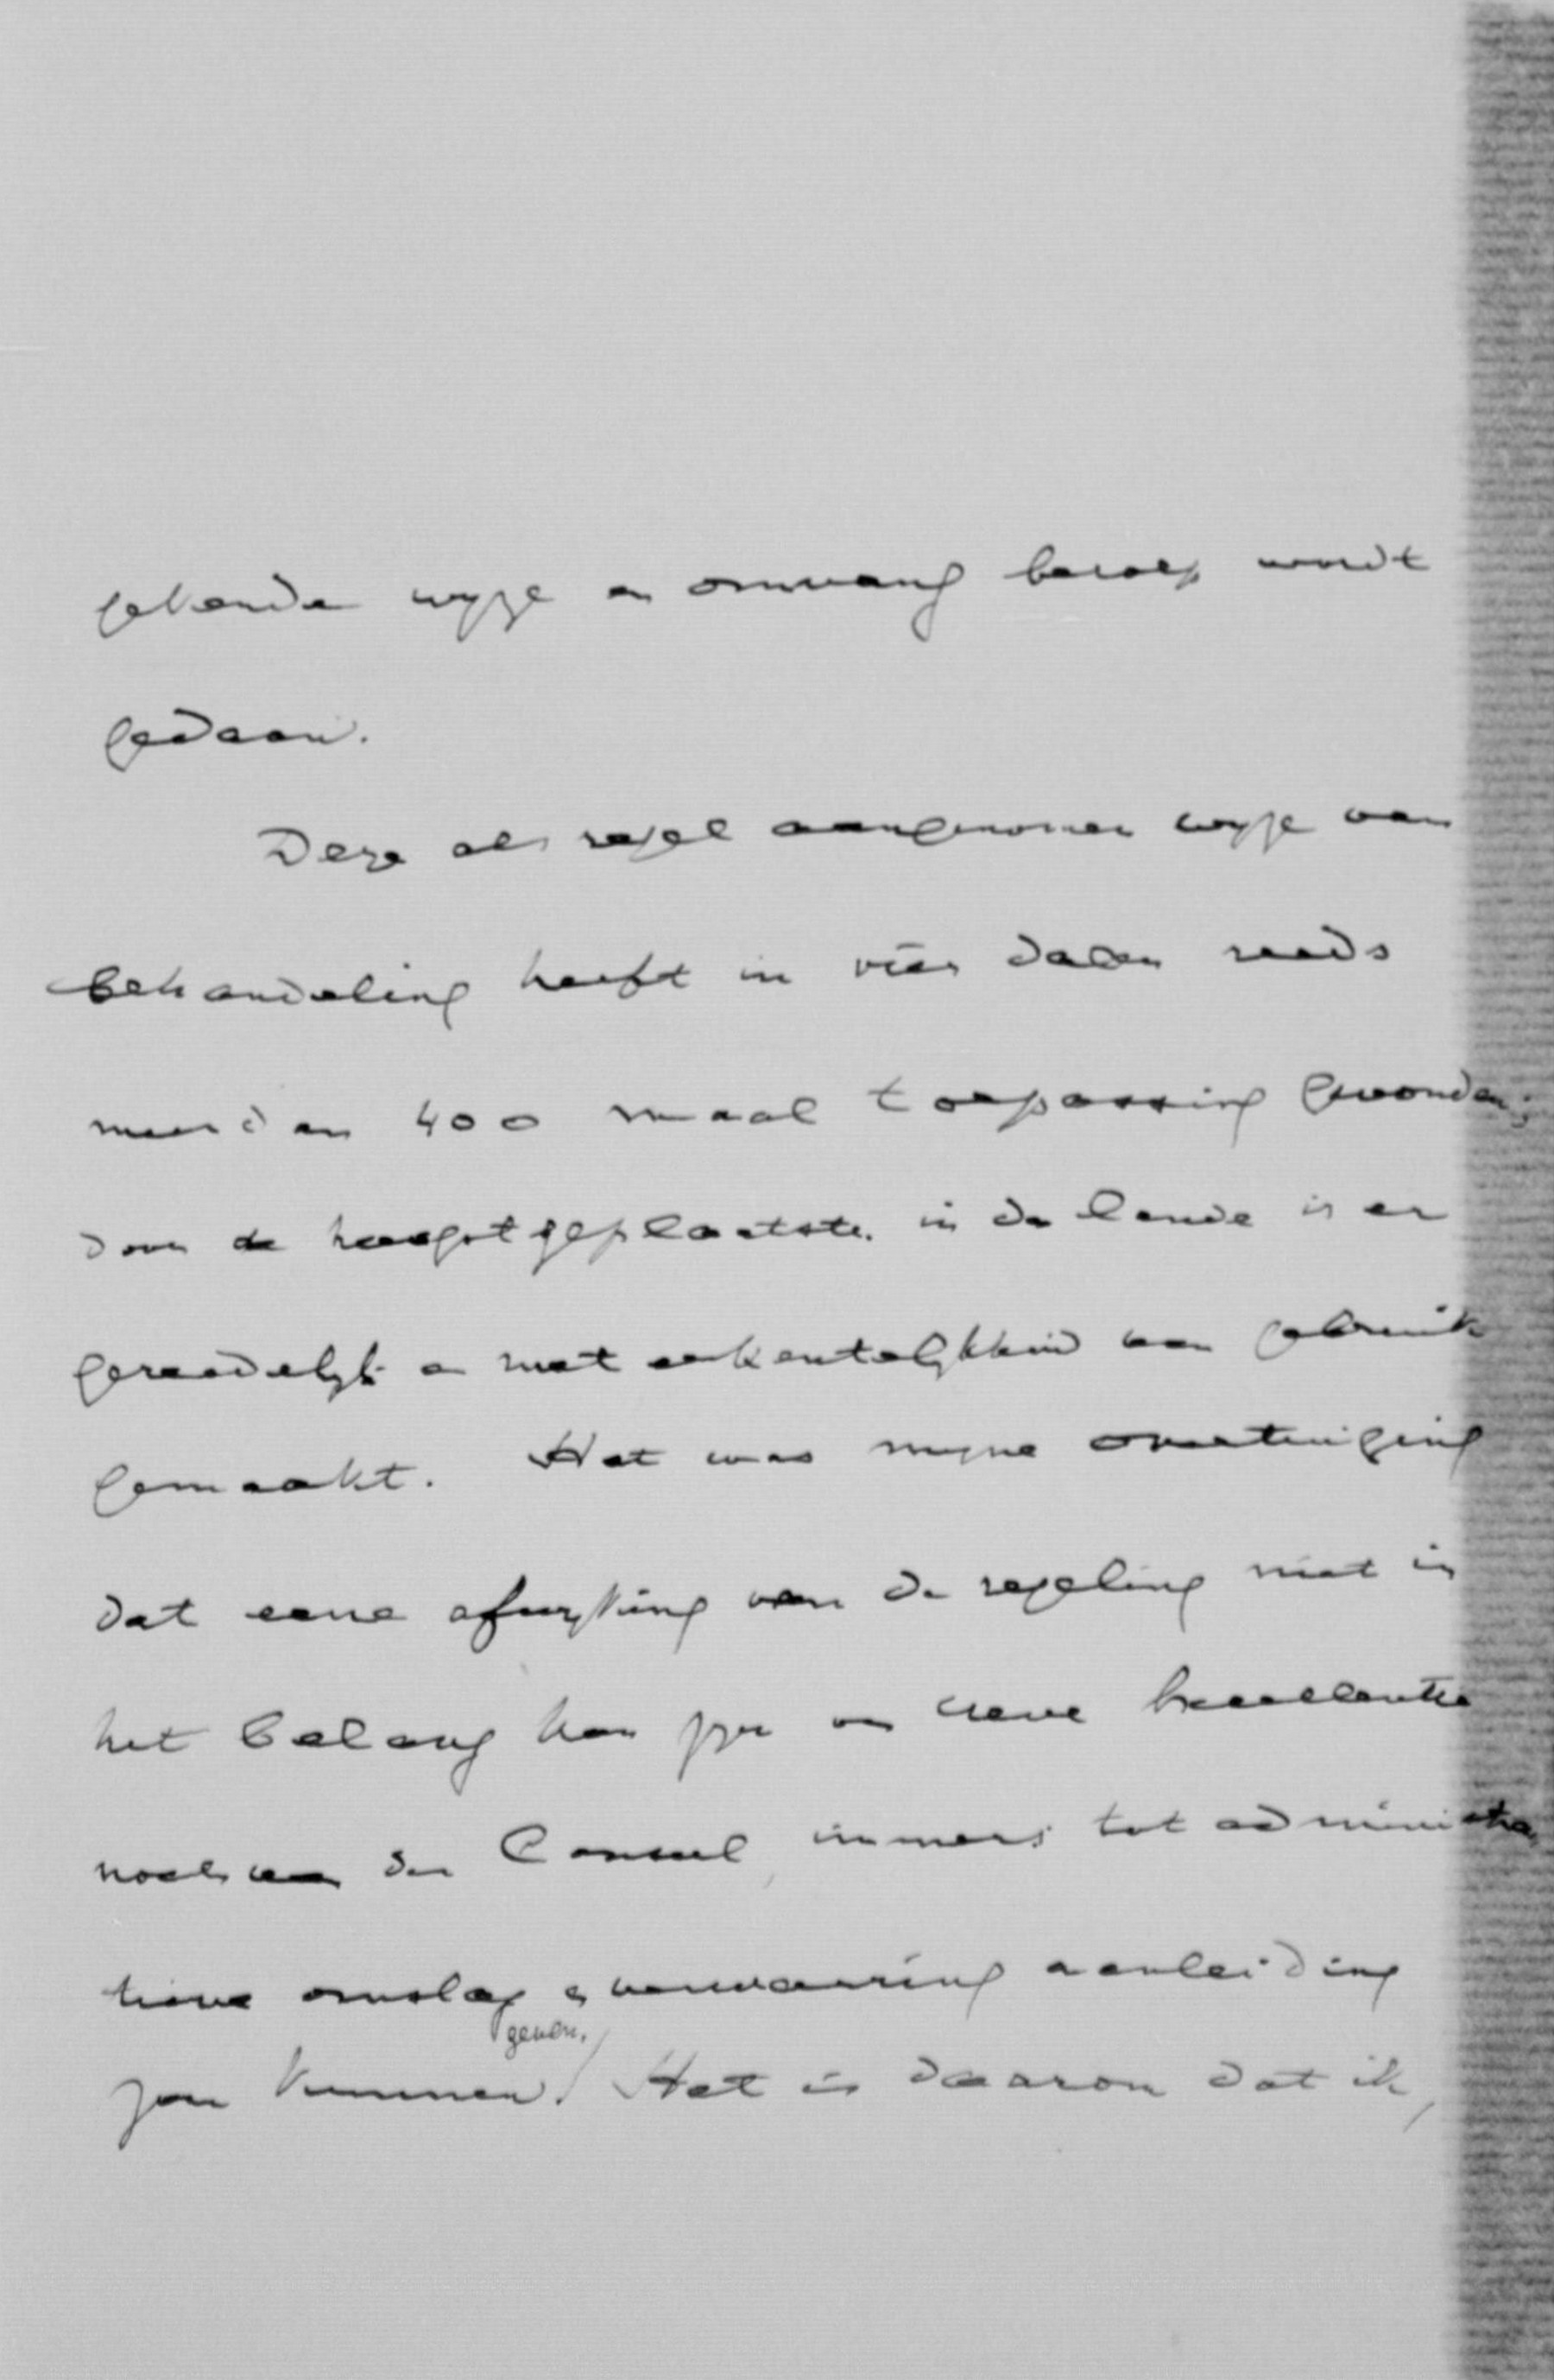 gekende wijze en omvang beroep wordt
gedaan.
Deze als regel aangenomen wijze van
behandeling heeft in vier dagen reeds
meer dan 400 maal toepassing gevonden;
door de hoogstgeplaatste in den lande is er
gereedelijk en met erkentelijkheid van gebruik
gemaakt. Het was mijne overtuiging
dat eene afwijking van de regeling niet in
het belang kon zijn van Uwe Excellentie
noch van den Consul, immers tot administra
tieve omslag en verwarring aanleiding
geven,
zou kunnen. Het is daarom dat ik,